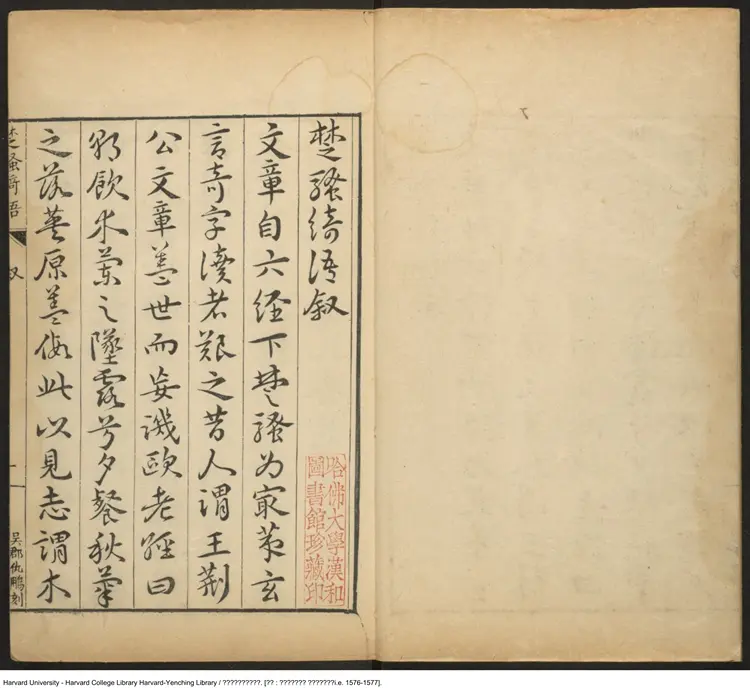 楚騷綺語叙
文章自六経下楚騷为冣第玄
言奇字讀者艱之昔人謂王荆
公文章蓋世而妄譏歐老經曰
朝飲木蘭之墜露兮夕餐秋菊
之落英原蓋假此以見志謂木
楚騷綺語
叙
一
吳郡仇鵬刻
哈佛大學漢和
圖書館珍藏印
Harvard University - Harvard College Library Harvard-Yenching Library / ??????????. [?? : ??????? ???????i.e. 1576-1577].